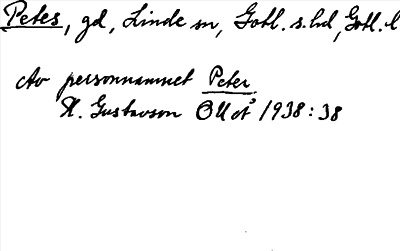 Petes, gd, Linde sn, Gotl. s. hd, Gotl. l
Av personnamnet Peter
H. Gustavson OUÅ 1938 : 38